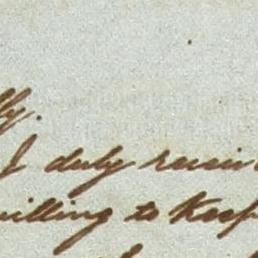 lly.
I duly receiv
willing to Keep